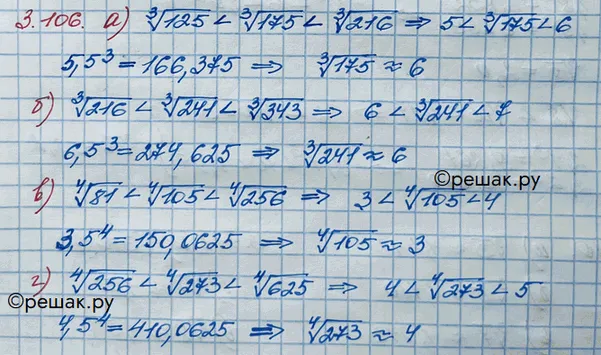 3.106. а) ∛125 < ∛175 < ∛216 ⇒ 5 < ∛175 < 6
5,5³ = 166,375 ⇒ ∛175 ≈ 6
б) ∛216 < ∛241 < ∛343 ⇒ 6 < ∛241 < 7
6,5³ = 274,625 ⇒ ∛241 ≈ 6
©решак.ру
в) ∜81 < ∜105 < ∜256 ⇒ 3 < ∜105 < 4
3,5⁴ = 150,0625 ⇒ ∜105 ≈ 3
г) ∜256 < ∜273 < ∜625 ⇒ 4 < ∜273 < 5
©решак.ру
4,5⁴ = 410,0625 ⇒ ∜273 ≈ 4